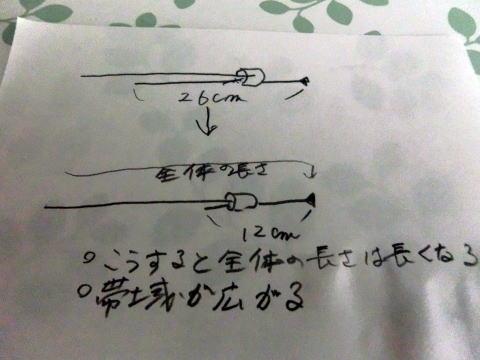 26cm
全体の長さ
12cm
○こうすると全体の長さは長くなる
○帯域が広がる